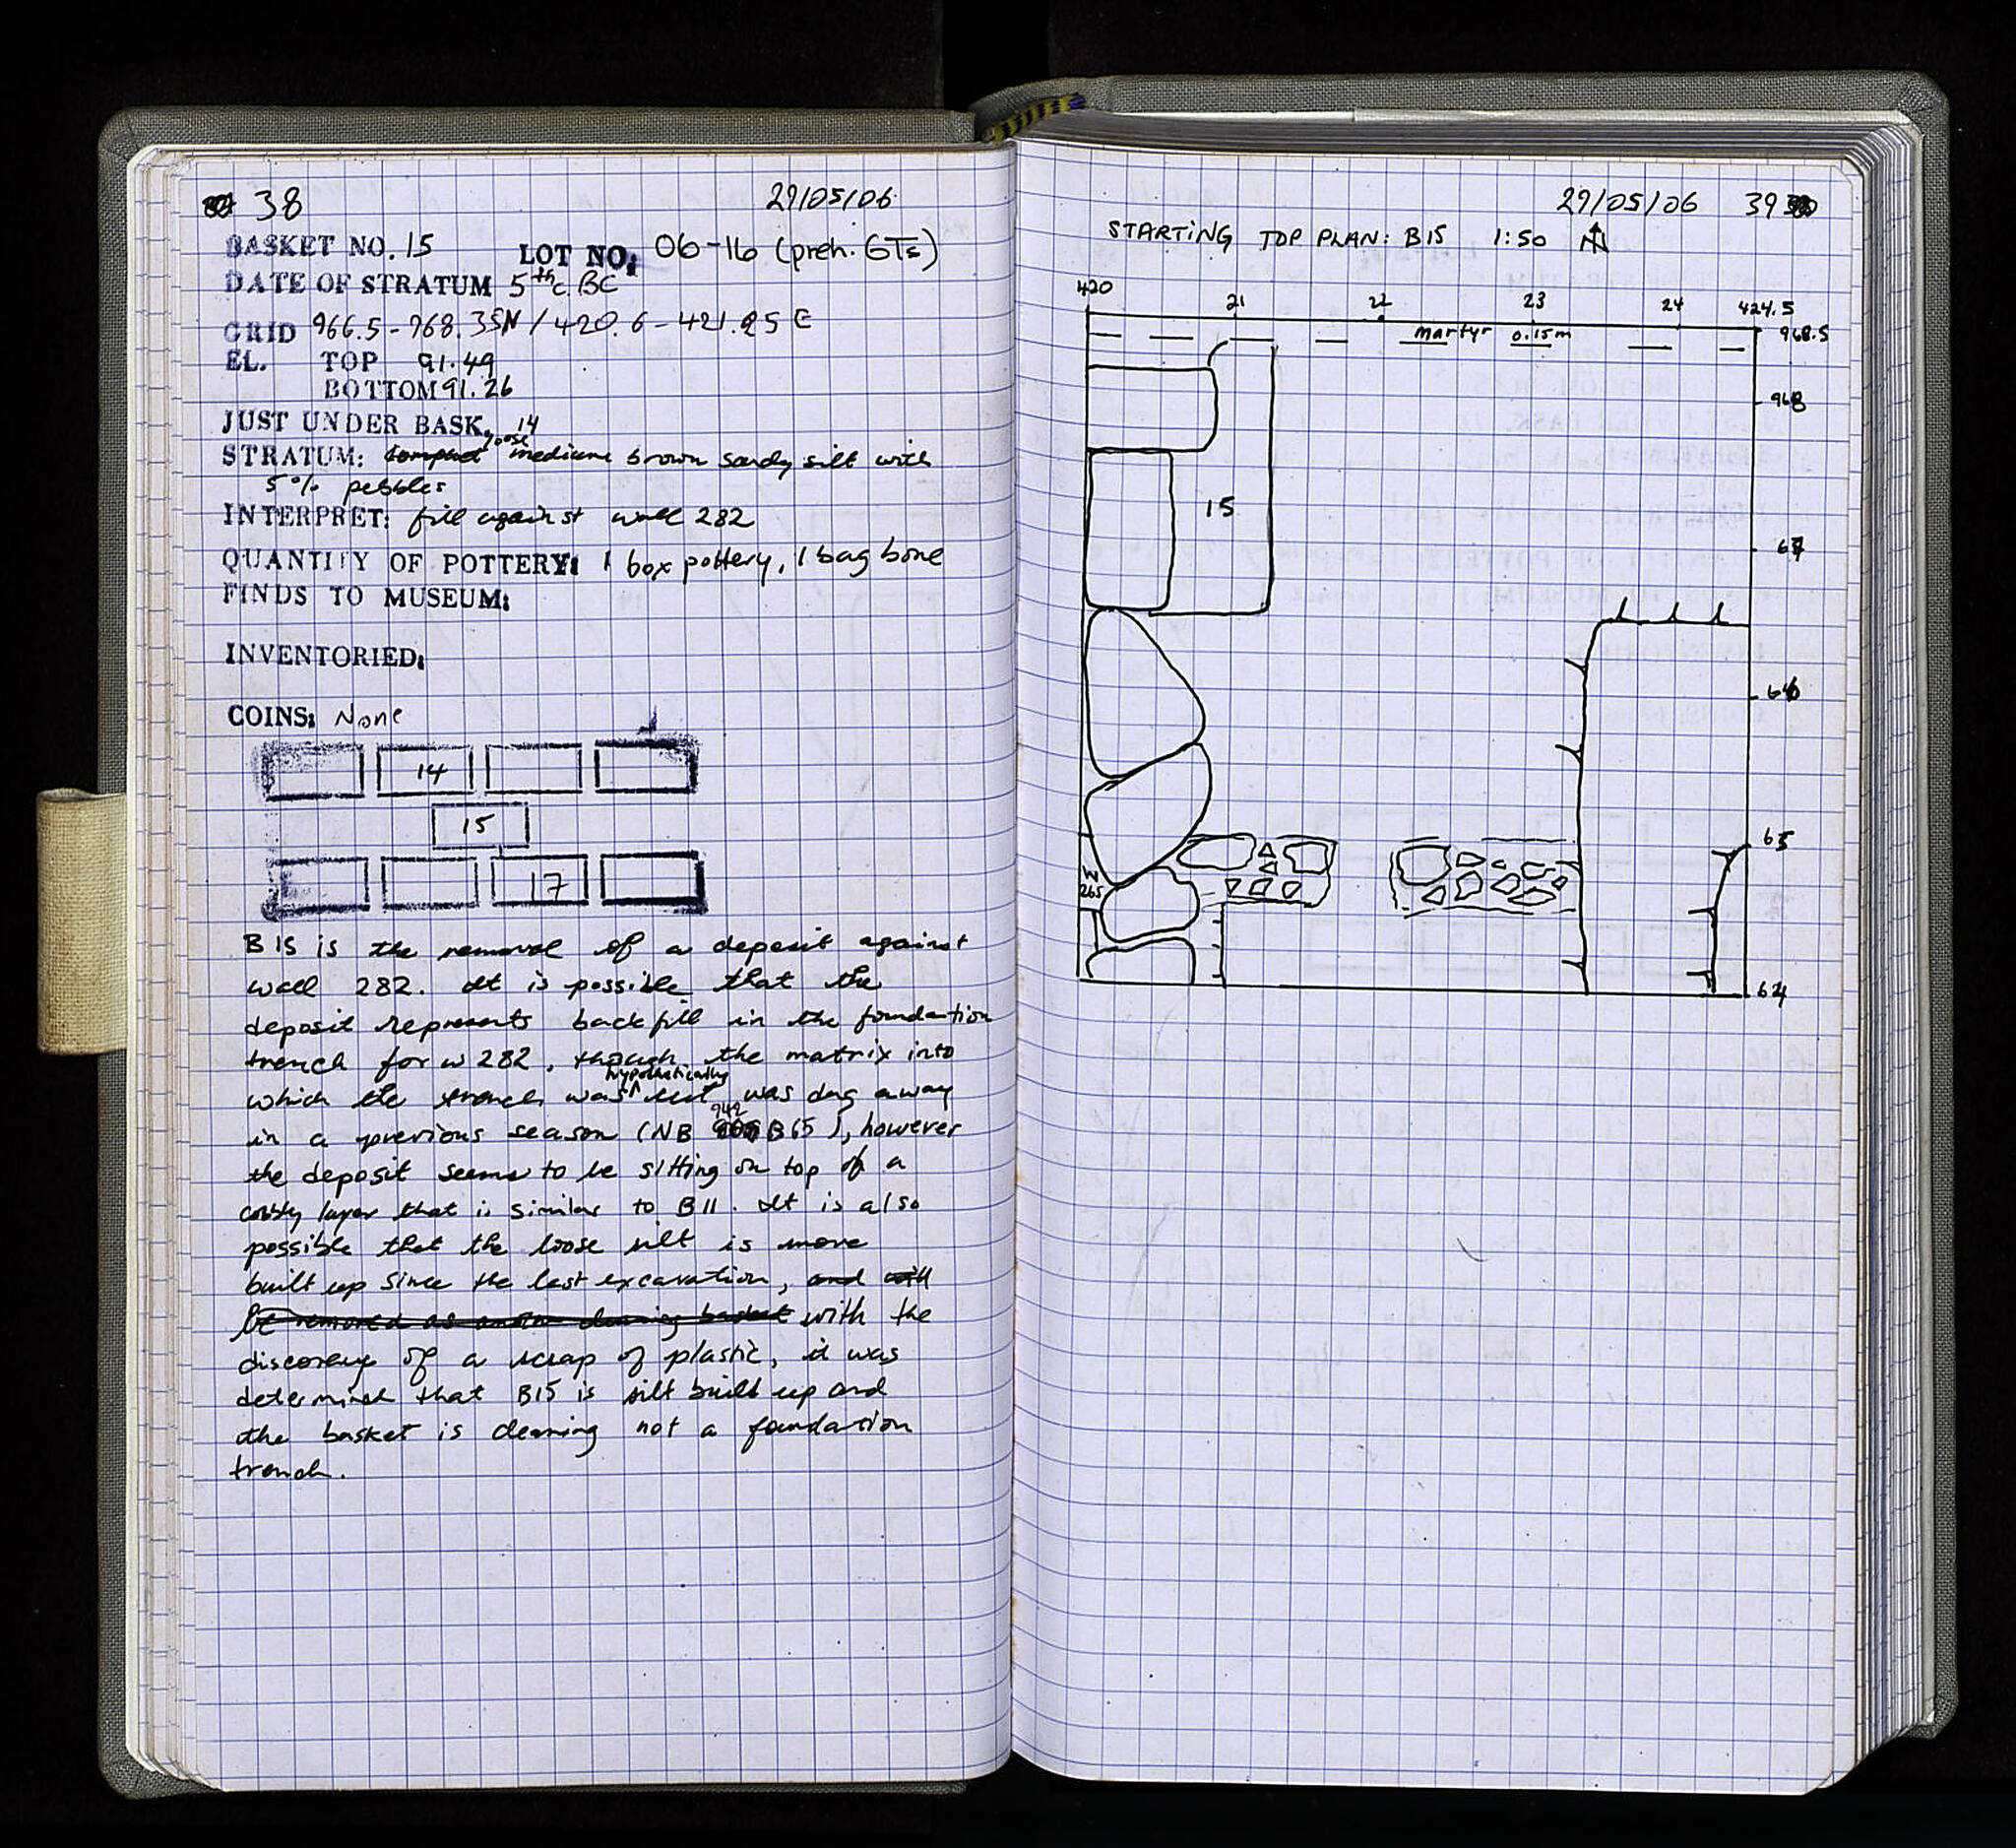 38 29/05/06
BASKET NO. 15 LOT NO: 06-16 (preh. GTs)
DATE OF STRATUM 5th c. BC
GRID 966.5-968.35N/420.6-421.25 E
EL. TOP 91.49
BOTTOM 91.26
JUST UNDER BASK. 14
STRATUM: compact loose medium brown sandy silt with
5% pebbles
INTERPRET: fill against wall 282
QUANTITY OF POTTERY: 1 box pottery, 1 bag bone
FINDS TO MUSEUM:
INVENTORIED:
COINS: None
14
15
17
B15 is the removal of a deposit against
wall 282. It is possible that the
deposit represents backfill in the foundation
trench for w 282, though the matrix into
which the trench was hypothetically cut was dug away
in a previous season (NB 942 B65), however
the deposit seems to be sitting on top of a
layer that is similar to B11. It is also
possible that the loose silt is more
built up since the last excavation, and will
be removed as another cleaning basket with the
discovery of a scrap of plastic, it was
determined that B15 is silt built up and
the basket is cleaning not a foundation
trench.
29/05/06 39
STARTING TOP PLAN: B15 1:50 N
420 21 22 23 24 424.5
martyr 0.15m 968.5
968
15
67
66
65
W
265
64